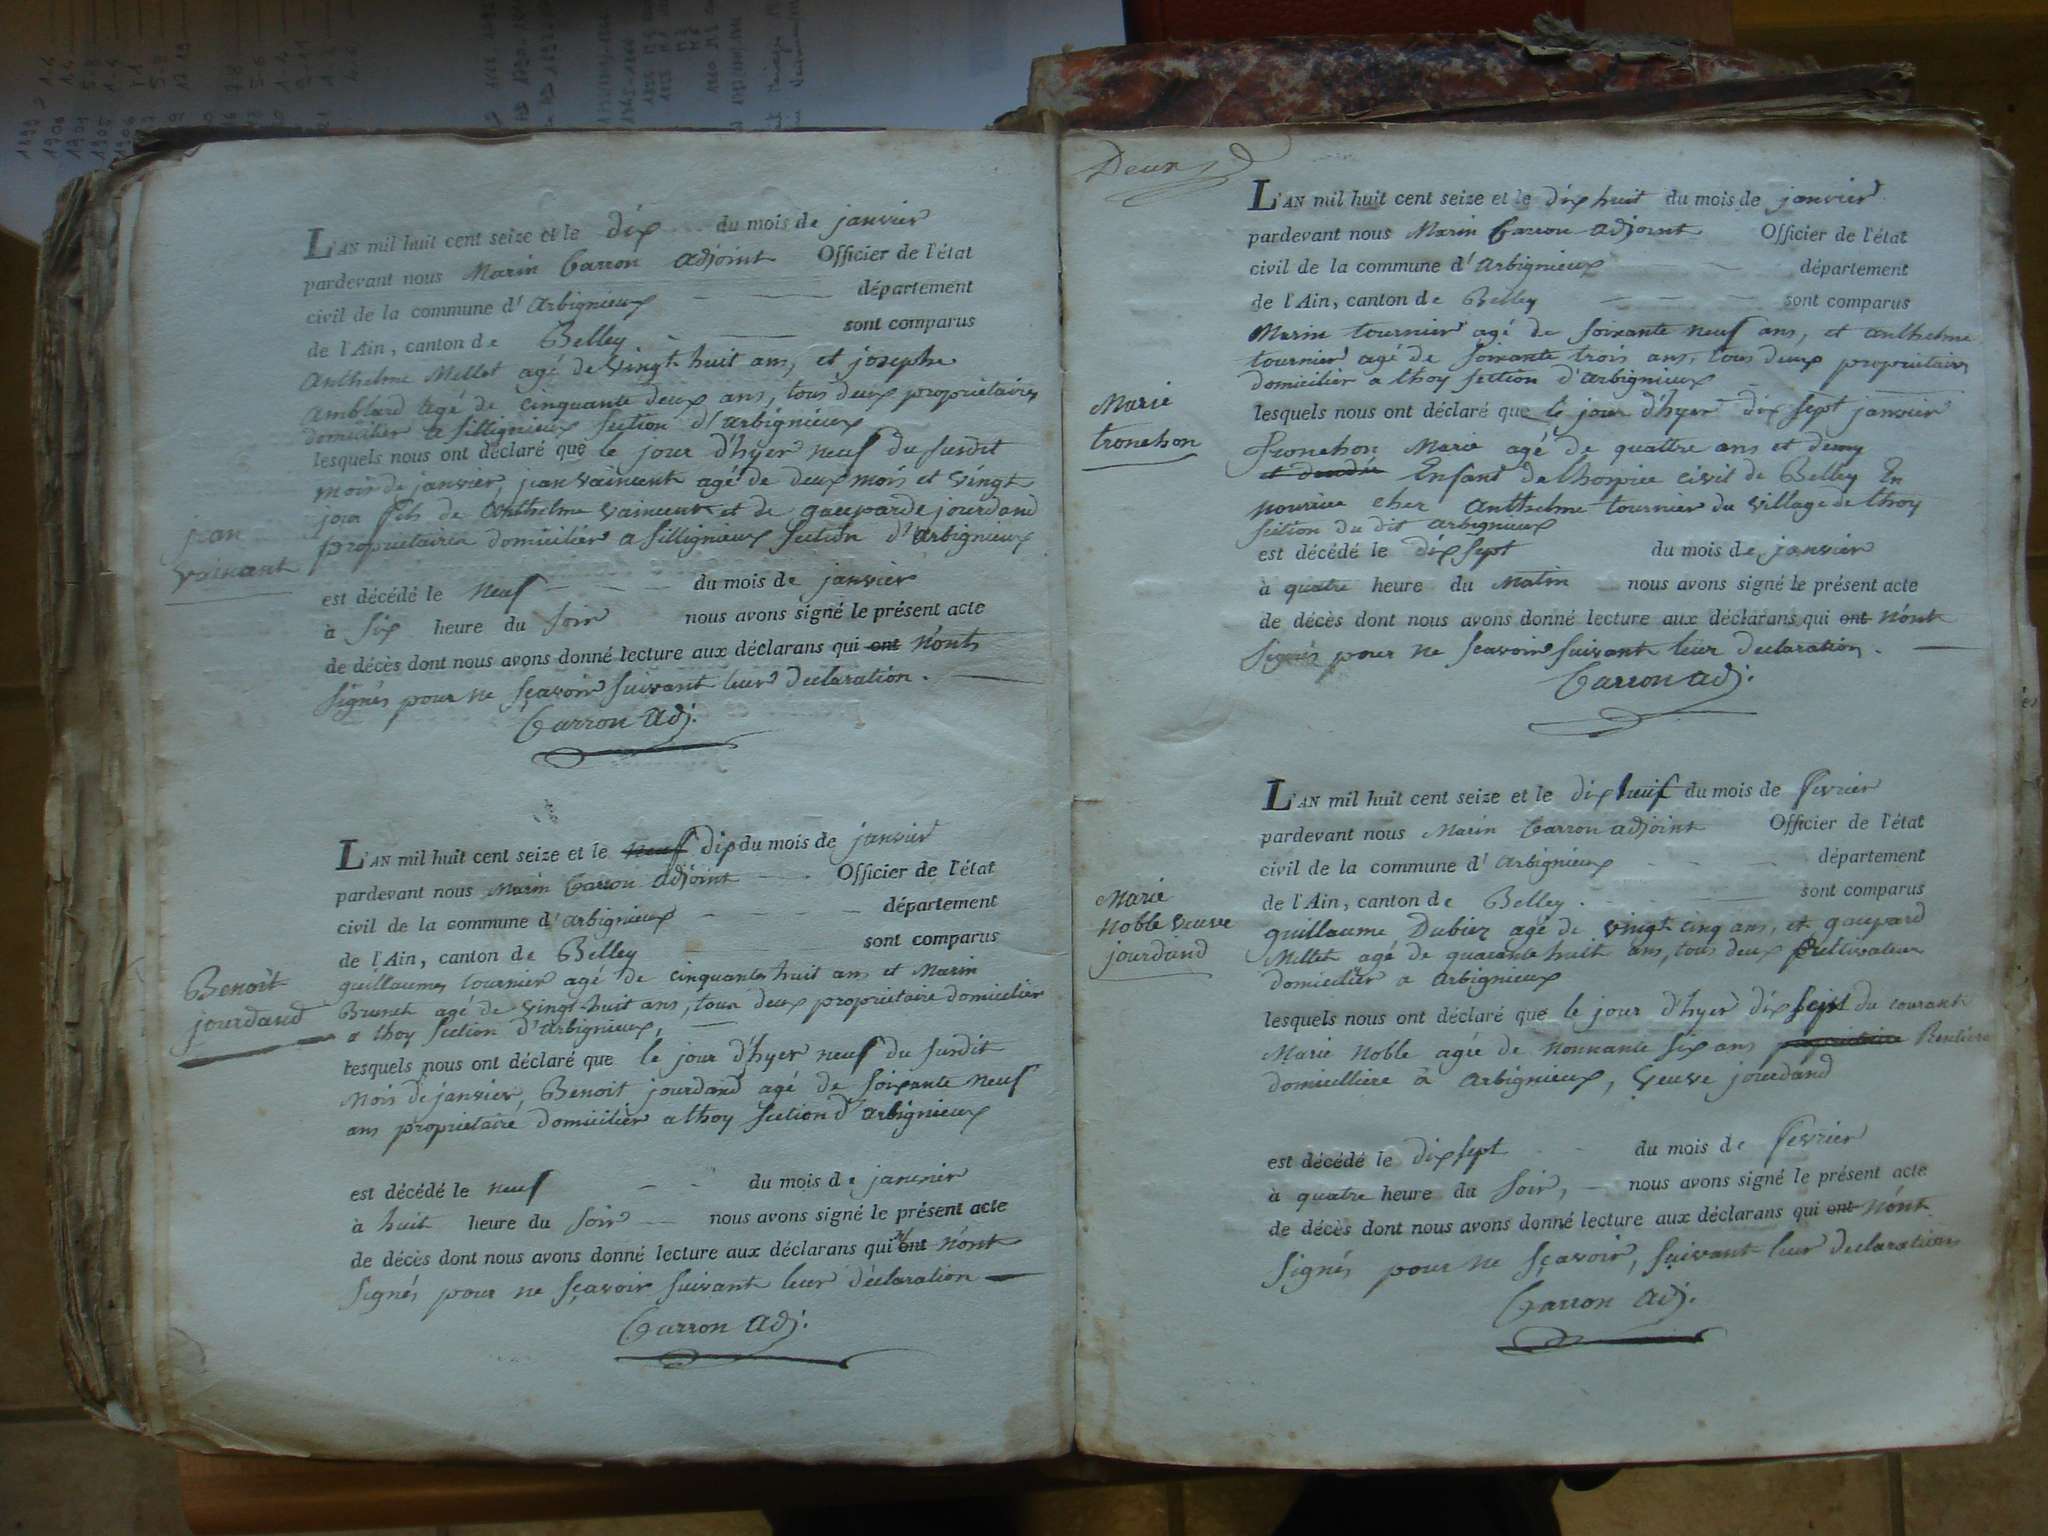 L'AN mil huit cent seize et le dix du mois de janvier
pardevant nous Marin Carron adjoint Officier de l'état
civil de la commune d'arbignieux département
de l'Ain, canton de Belley sont comparus
anthelme Mellet agé de vingt huit ans, et josephe
amblard agé de cinquante deux ans, tous deux proprietaires
domicilier a sillignieux section d'arbignieux
lesquels nous ont déclaré que le jour d'hyer neuf du susdit
mois de janvier, jean vaincent agé de deux mois et vingt
jour fils de anthelme vaincent et de gasparde jourdand
proprietaires domicilier a sillignieux section d'arbignieux
jean
vainant
est décédé le neuf du mois de janvier
à six heure du soir nous avons signé le présent acte
de décès dont nous avons donné lecture aux déclarans qui ont n'onts
signés pour ne sçavoir suivant leur declaration.
Carron adj.
L'AN mil huit cent seize et le neuf dix du mois de janvier
pardevant nous Marin Carron adjoint Officier de l'état
civil de la commune d'arbignieux département
de l'Ain, canton de Belley sont comparus
guillaumes tournier agé de cinquante huit ans et Marin
Brunet agé de vingt-huit ans, tous deux proprietaire domicilier
a thoy section d'arbignieux,
Benoit
jourdand
lesquels nous ont déclaré que le jour d'hyer neuf du susdit
mois de janvier, Benoit jourdand agé de soixante neuf
ans proprietaire domicilier a thoy section d'arbignieux
est décédé le neuf du mois de janvier
à huit heure du soir nous avons signé le présent acte
de décès dont nous avons donné lecture aux déclarans qui ont n'ont
signés pour ne sçavoir suivant leur déclaration
Carron adj.
Deux
L'AN mil huit cent seize et le dix huit du mois de janvier
pardevant nous Marin Carron adjoint Officier de l'état
civil de la commune d'arbignieux département
de l'Ain, canton de Belley sont comparus
Marin tournier agé de soixante neuf ans, et anthelme
tournier agé de soixante trois ans, tous deux proprietaires
domicilier a thoy section d'arbignieux
Marie
tronchon
lesquels nous ont déclaré que le jour d'hyer dix sept janvier
Tronchon Marie agé de quattre ans et demy
Enfant de lhospice civil de Belley En
nourrice cher anthelme tournier du village de thoy
section du dit arbignieux
est décédé le dix sept du mois de janvier
à quatre heure du Matin nous avons signé le présent acte
de décès dont nous avons donné lecture aux déclarans qui ont n'ont
signés pour ne sçavoir suivant leur declaration.
Carron adj.
L'AN mil huit cent seize et le dix huit du mois de fevrier
pardevant nous Marin Carron adjoint Officier de l'état
civil de la commune d'arbignieux département
de l'Ain, canton de Belley sont comparus
guillaume Dubiez agé de vingt cinq ans, et gaspard
Mellet agé de quarante huit ans, tous deux cultivateur
domicilier a arbignieux
Marie
Noble veuve
jourdand
lesquels nous ont déclaré que le jour d'hyer dix sept du courant
Marie Noble agée de nonnante six ans proprietaire Rentiere
domicilliere à arbignieux, veuve jourdand
est décédé le dix sept du mois de fevrier
à quatre heure du soir, nous avons signé le présent acte
de décès dont nous avons donné lecture aux déclarans qui ont n'ont
signés pour ne sçavoir, suivant leur declaration
Carron adj.